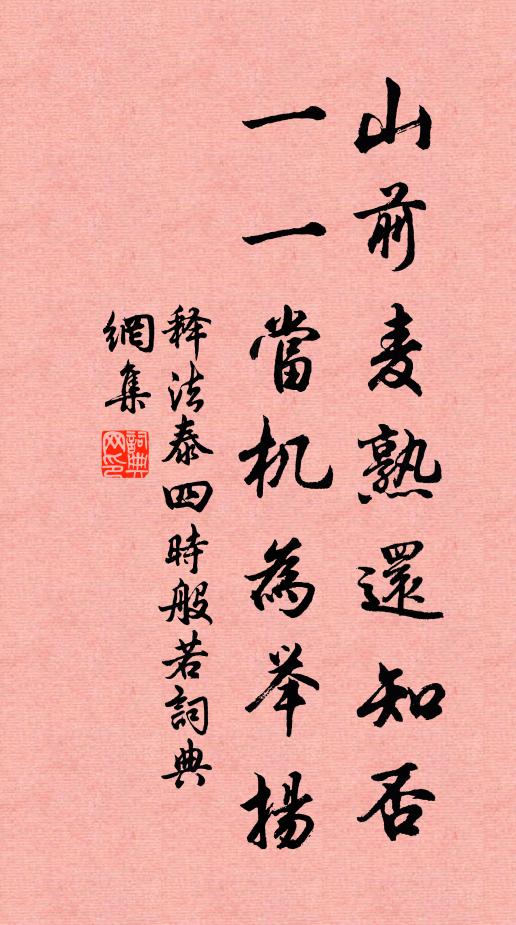 山前麦熟還知否
一一當机為举揚
释法泰四時般若詞典
網集
詞典网印